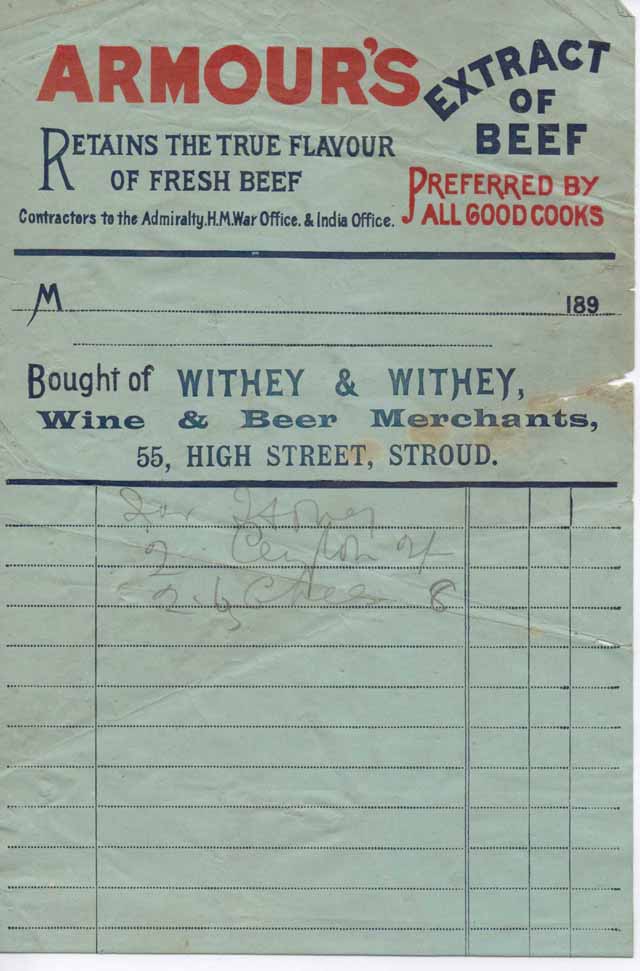 ARMOUR'S EXTRACT OF BEEF
RETAINS THE TRUE FLAVOUR
OF FRESH BEEF
PREFERRED BY
ALL GOOD COOKS
Contractors to the Admiralty. H.M. War Office. & India Office.
M 189
Bought of WITHEY & WITHEY,
Wine & Beer Merchants,
55, HIGH STREET, STROUD.
2 Ceylon
8